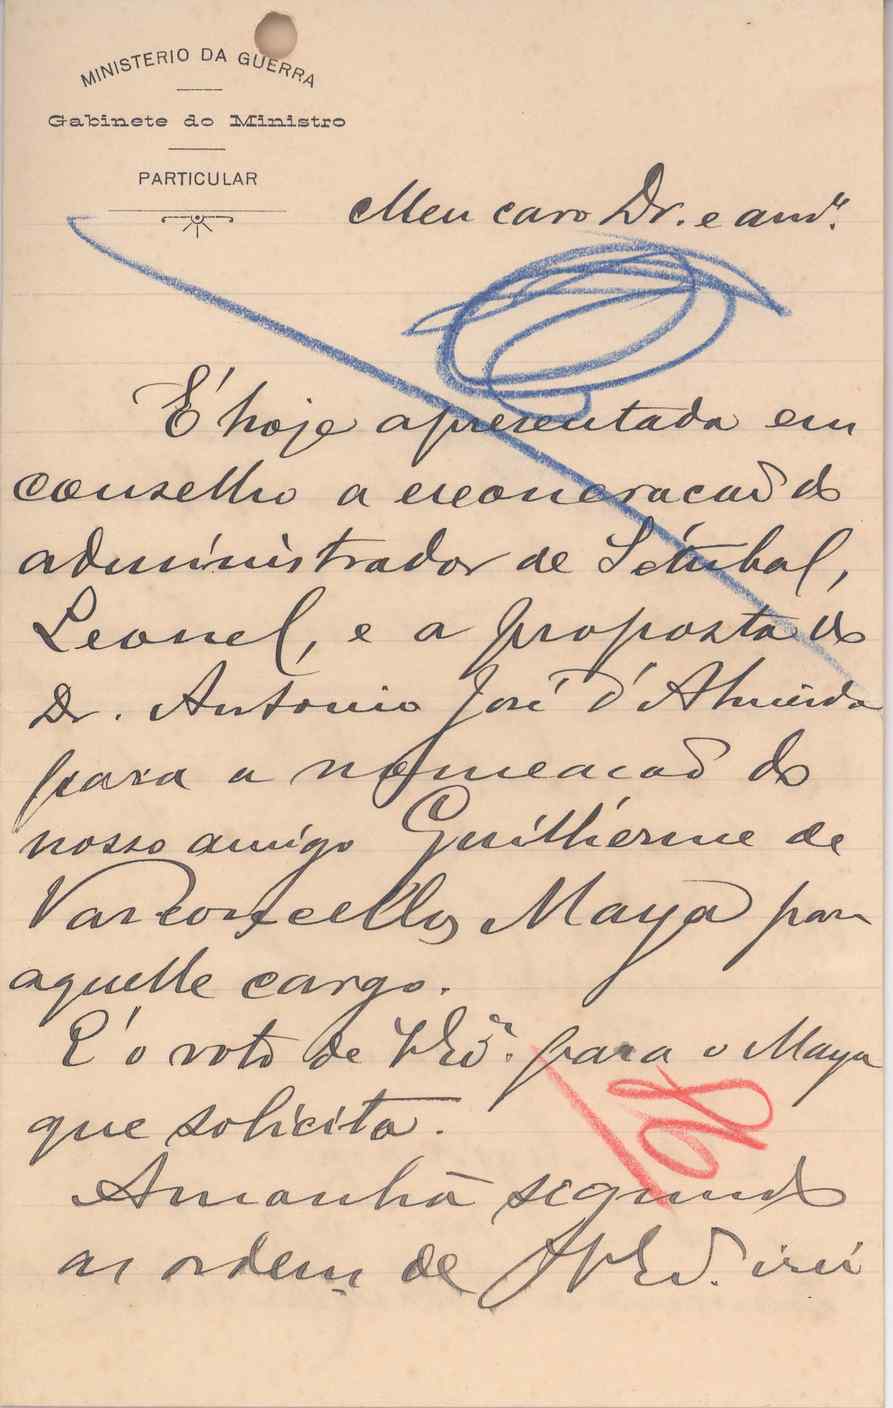 MINISTERIO DA GUERRA
Gabinete doMinistro
PARTICULAR
Meu caro Dr. e am.º
É hoje apresentada em
conselho a exoneracaõ do
administrador de Setubal,
Leonel, e a proposta do
Dr. Antonio José d'Almeida
para a nomeacaõ do
nosso amigo Guilherme de
Vasconcellos Maya para
aquelle cargo.
É o voto de V. Ex.ª para o Maya
que solicita.
Amanhã segundo
as ordens de V. Ex.ª irei